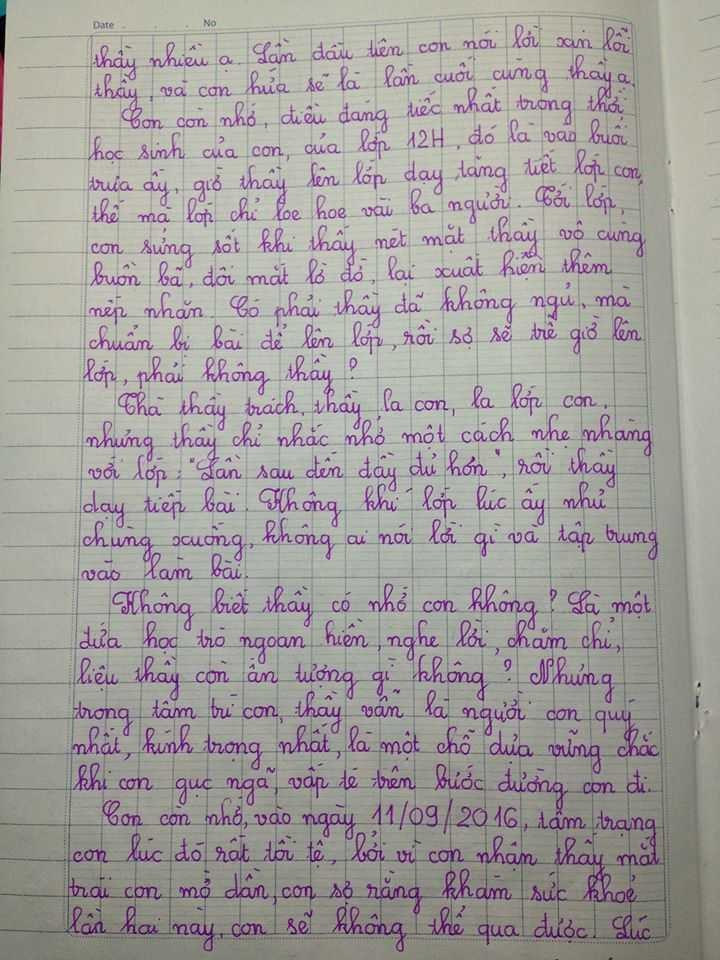 Date . . . No
thầy nhiều ạ. Lần đầu tiên con nói lời xin lỗi
thầy, và con hứa sẽ là lần cuối cùng thầy ạ.
Con còn nhớ, điều đáng tiếc nhất trong thời
học sinh của con, của lớp 12H, đó là vào buổi
trưa ấy, giờ thầy lên lớp dạy tăng tiết lớp con,
thế mà lớp chỉ loe hoe vài ba người. Tới lớp,
con sửng sốt khi thấy nét mặt thầy vô cùng
buồn bã, đôi mắt lờ đờ, lại xuất hiện thêm
nếp nhăn. Có phải thầy đã không ngủ, mà
chuẩn bị bài để lên lớp, rồi sợ sẽ trễ giờ lên
lớp, phải không thầy?
Thà thầy trách, thầy la con, la lớp con,
nhưng thầy chỉ nhắc nhở một cách nhẹ nhàng
với lớp: "Lần sau đến đầy đủ hơn", rồi thầy
dạy tiếp bài. Không khí lớp lúc ấy như
chùng xuống, không ai nói lời gì và tập trung
vào làm bài.
Không biết thầy có nhớ con không? Là một
đứa học trò ngoan hiền, nghe lời, chăm chỉ,
liệu thầy còn ấn tượng gì không? Nhưng
trong tâm trí con, thầy vẫn là người con quý
nhất, kính trọng nhất, là một chỗ dựa vững chắc
khi con gục ngã, vấp té trên bước đường con đi.
Con còn nhớ, vào ngày 11/09/2016, tâm trạng
con lúc đó rất tồi tệ, bởi vì con nhận thấy mắt
trái con mờ dần, con sợ rằng khám sức khoẻ
lần hai này, con sẽ không thể qua được. Lúc